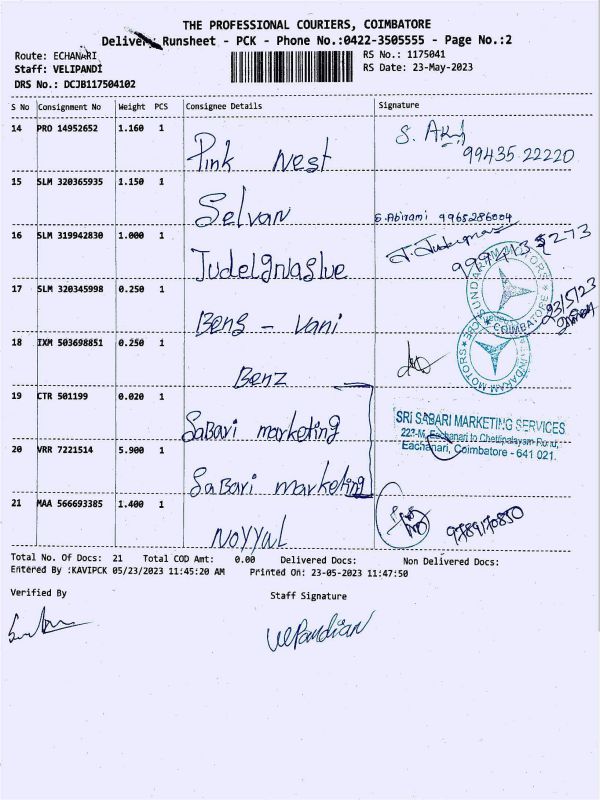 THE PROFESSIONAL COURIERS, COIMBATORE
Delivery Runsheet - PCK - Phone No.:0422-3505555 - Page No.:2
Route: ECHANARI
RS No.: 1175041
Staff: VELIPANDI
RS Date: 23-May-2023
DRS No.: DCJB117504102
S No Consignment No Weight PCS Consignee Details Signature
14 PRO 14952652 1.160 1 Pink Nest
99435 22220
15 SLM 320365935 1.150 1 Selvan S. Abirami 9965286004
16 SLM 319942830 1.000 1
17 SLM 320345998 0.250 1 Bens - Vani
SUNDARAM MOTORS
COIMBATORE
23/5/23
18 IXM 503698851 0.250 1 Benz
SUNDARAM MOTORS
19 CTR 501199 0.020 1 Sabari marketing
SRI SABARI MARKETING SERVICES
223-M, Eachanari to Chettipalayam Road,
Eachanari, Coimbatore - 641 021.
20 VRR 7221514 5.900 1 Sabari marketing
21 MAA 566693385 1.400 1 NOYYAL 9789170850
Total No. Of Docs: 21 Total COD Amt: 0.00 Delivered Docs: Non Delivered Docs:
Entered By :KAVIPCK 05/23/2023 11:45:20 AM Printed On: 23-05-2023 11:47:50
Verified By
Staff Signature